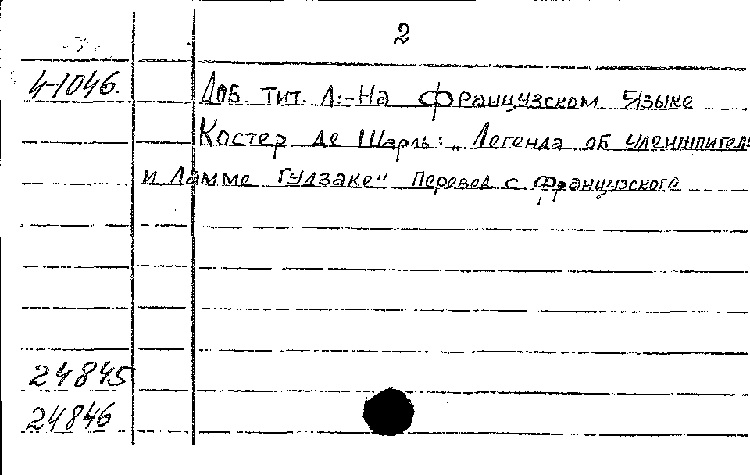 2
4-1046. Доб тит. л:-На французском языке
Костер де Шарль: „Легенда об
и Ламме Гудзаке" Перевод с французского
24845
24846